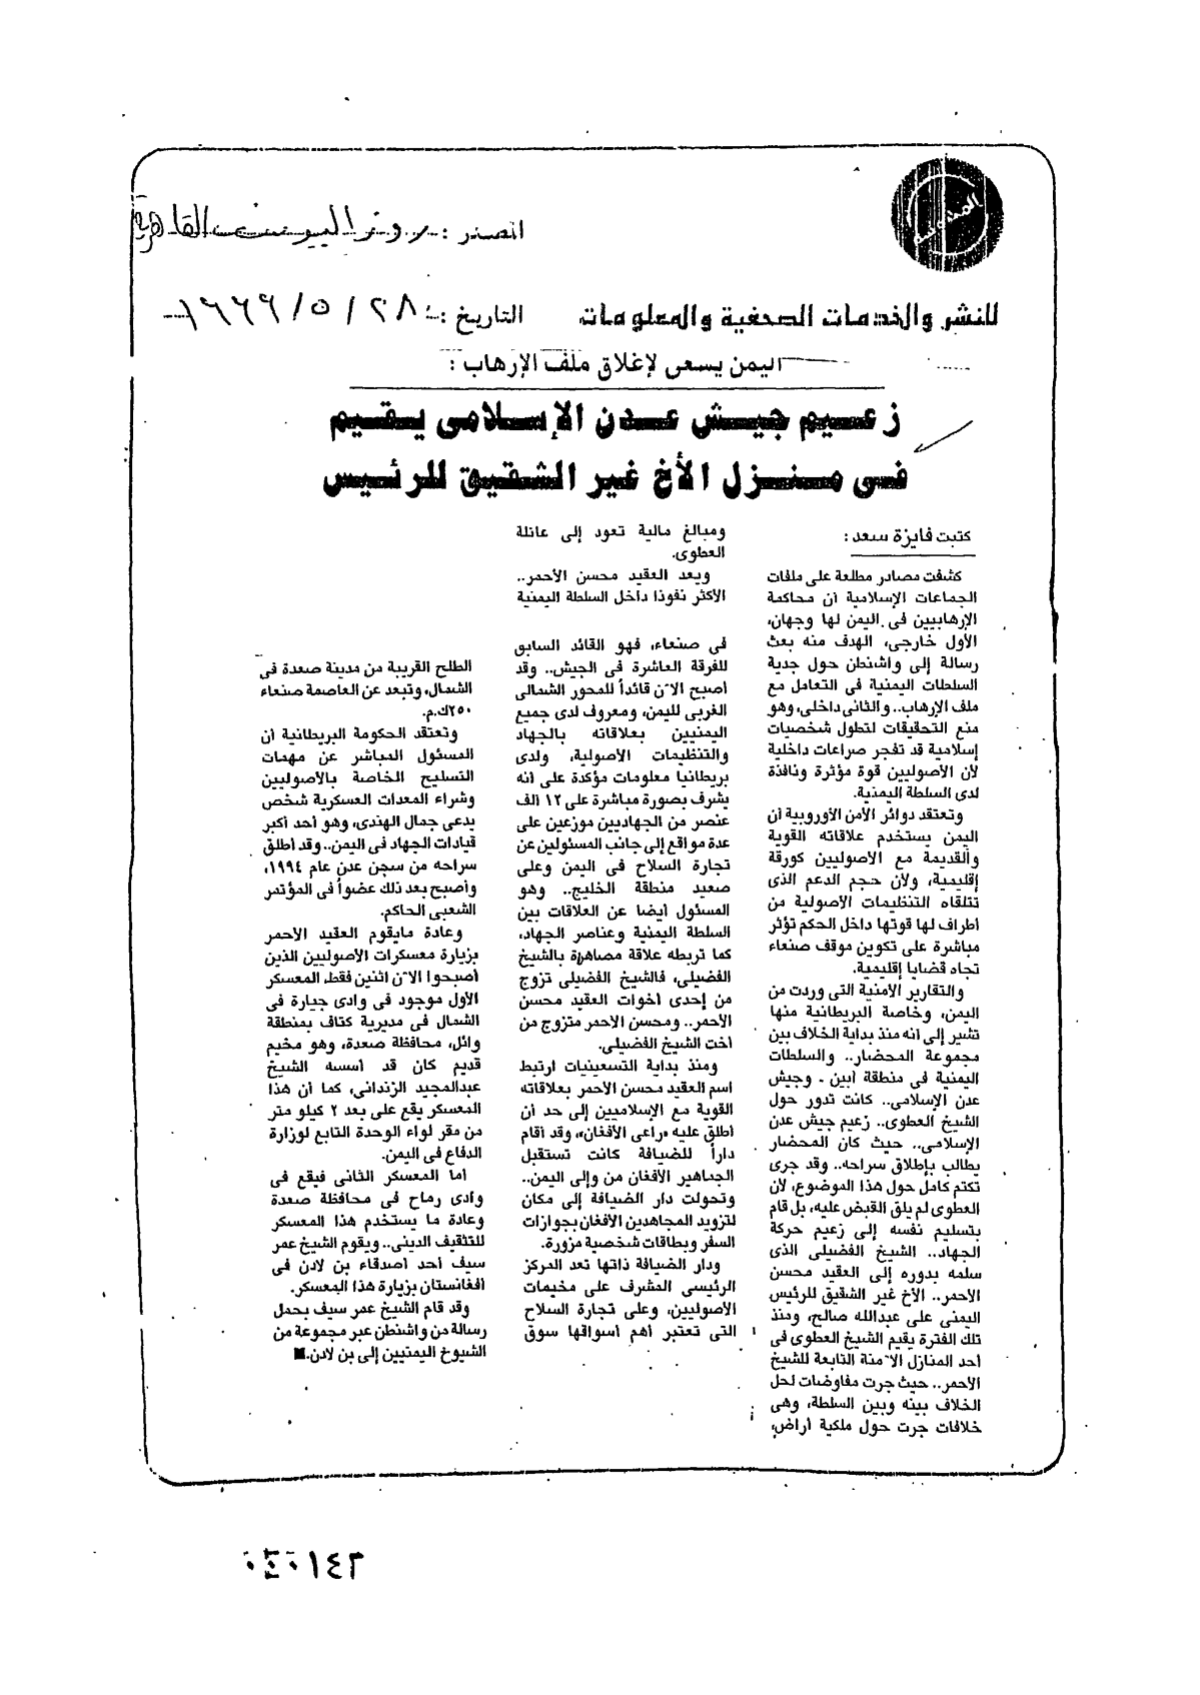 المصدر :- روز اليوسف القاهرية
للنشر والخدمات الصحفية والمعلومات
التاريخ :- ٢٨ / ٥ / ١٩٩٩
اليمن يسعى لإغلاق ملف الإرهاب :
زعيم جيش عدن الإسلامى يقيم
فى منزل الأخ غير الشقيق للرئيس
كتبت فايزة سعد :
كشفت مصادر مطلعة على ملفات
الجماعات الإسلامية أن محاكمة
الإرهابيين فى اليمن لها وجهان،
الأول خارجى، الهدف منه بعث
رسالة إلى واشنطن حول جدية
السلطات اليمنية فى التعامل مع
ملف الإرهاب.. والثانى داخلى، وهو
منع التحقيقات لتطول شخصيات
إسلامية قد تفجر صراعات داخلية
لأن الأصوليين قوة مؤثرة ونافذة
لدى السلطة اليمنية.
وتعتقد دوائر الأمن الأوروبية أن
اليمن يستخدم علاقاته القوية
والقديمة مع الأصوليين كورقة
إقليمية، ولأن حجم الدعم الذى
تتلقاه التنظيمات الأصولية من
أطراف لها قوتها داخل الحكم تؤثر
مباشرة على تكوين موقف صنعاء
تجاه قضايا إقليمية.
والتقارير الأمنية التى وردت من
اليمن، وخاصة البريطانية منها
تشير إلى أنه منذ بداية الخلاف بين
مجموعة المحضار.. والسلطات
اليمنية فى منطقة أبين - وجيش
عدن الإسلامى.. كانت تدور حول
الشيخ العطوى.. زعيم جيش عدن
الإسلامى.. حيث كان المحضار
يطالب بإطلاق سراحه.. وقد جرى
تكتم كامل حول هذا الموضوع، لأن
العطوى لم يلق القبض عليه، بل قام
بتسليم نفسه إلى زعيم حركة
الجهاد.. الشيخ الفضيلى الذى
سلمه بدوره إلى العقيد محسن
الأحمر.. الأخ غير الشقيق للرئيس
اليمنى على عبدالله صالح، ومنذ
تلك الفترة يقيم الشيخ العطوى فى
أحد المنازل الآمنة التابعة للشيخ
الأحمر.. حيث جرت مفاوضات لحل
الخلاف بينه وبين السلطة، وهى
خلافات جرت حول ملكية أراض،
ومبالغ مالية تعود إلى عائلة
العطوى.
ويعد العقيد محسن الأحمر..
الأكثر نفوذا داخل السلطة اليمنية
فى صنعاء، فهو القائد السابق
للفرقة العاشرة فى الجيش.. وقد
أصبح الآن قائداً للمحور الشمالى
الغربى لليمن، ومعروف لدى جميع
اليمنيين بعلاقاته بالجهاد
والتنظيمات الأصولية، ولدى
بريطانيا معلومات مؤكدة على أنه
يشرف بصورة مباشرة على ١٢ ألف
عنصر من الجهاديين موزعين على
عدة مواقع إلى جانب المسئولين عن
تجارة السلاح فى اليمن وعلى
صعيد منطقة الخليج.. وهو
المسئول أيضا عن العلاقات بين
السلطة اليمنية وعناصر الجهاد،
كما تربطه علاقة مصاهرة بالشيخ
الفضيلى، فالشيخ الفضيلى تزوج
من إحدى أخوات العقيد محسن
الأحمر.. ومحسن الأحمر متزوج من
أخت الشيخ الفضيلى.
ومنذ بداية التسعينيات ارتبط
اسم العقيد محسن الأحمر بعلاقاته
القوية مع الإسلاميين إلى حد أن
أطلق عليه «راعى الأفغان»، وقد أقام
داراً للضيافة كانت تستقبل
الجماهير الأفغان من وإلى اليمن..
وتحولت دار الضيافة إلى مكان
لتزويد المجاهدين الأفغان بجوازات
السفر وبطاقات شخصية مزورة.
ودار الضيافة ذاتها تعد المركز
الرئيسى المشرف على مخيمات
الأصوليين، وعلى تجارة السلاح
التى تعتبر أهم أسواقها سوق
الطلح القريبة من مدينة صعدة فى
الشمال، وتبعد عن العاصمة صنعاء
٢٥٠ك.م.
وتعتقد الحكومة البريطانية أن
المسئول المباشر عن مهمات
التسليح الخاصة بالأصوليين
وشراء المعدات العسكرية شخص
يدعى جمال الهندى، وهو أحد أكبر
قيادات الجهاد فى اليمن.. وقد أطلق
سراحه من سجن عدن عام ١٩٩٤،
وأصبح بعد ذلك عضواً فى المؤتمر
الشعبى الحاكم.
وعادة مايقوم العقيد الأحمر
بزيارة معسكرات الأصوليين الذين
أصبحوا الآن اثنين فقط، المعسكر
الأول موجود فى وادى جبارة فى
الشمال فى مديرية كتاف بمنطقة
وائل، محافظة صعدة، وهو مخيم
قديم كان قد أسسه الشيخ
عبدالمجيد الزندانى، كما أن هذا
المعسكر يقع على بعد ٢ كيلو متر
من مقر لواء الوحدة التابع لوزارة
الدفاع فى اليمن.
أما المعسكر الثانى فيقع فى
وادى رماح فى محافظة صعدة
وعادة ما يستخدم هذا المعسكر
للتثقيف الدينى.. ويقوم الشيخ عمر
سيف أحد أصدقاء بن لادن فى
أفغانستان بزيارة هذا المعسكر.
وقد قام الشيخ عمر سيف بحمل
رسالة من واشنطن عبر مجموعة من
الشيوخ اليمنيين إلى بن لادن.■